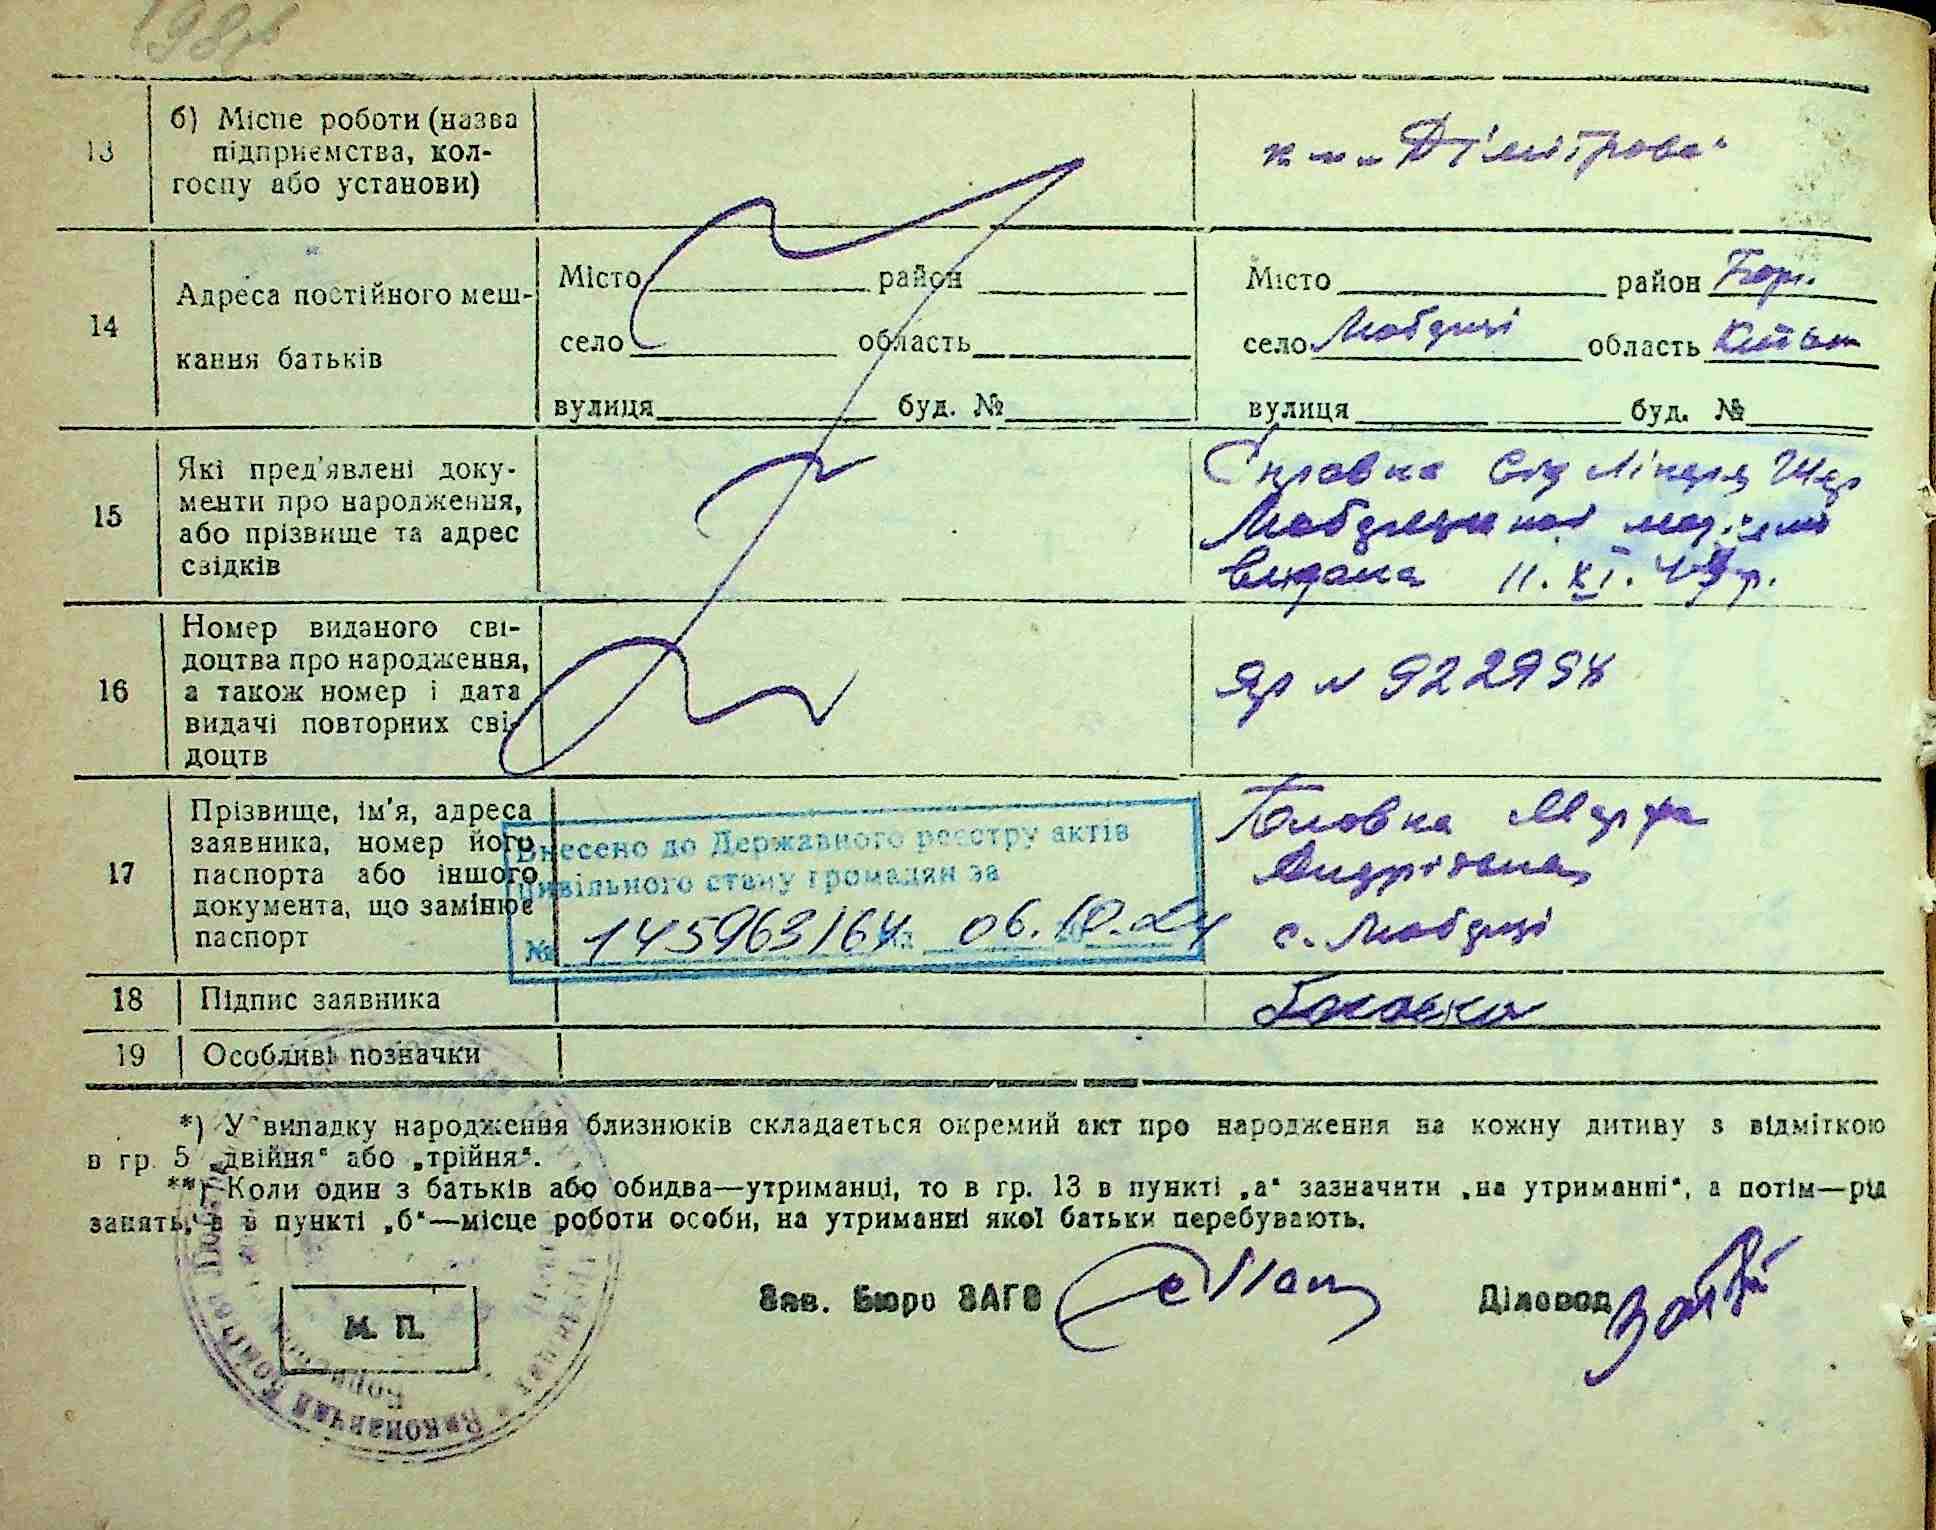 198
13
б) Місце роботи (назва
підприємства, кол-
госпу або установи)
к-п „Дімітрова"
14
Адреса постійного меш-
кання батьків
Місто район
село область
вулиця буд. №
Місто район Бор.
село Любарці область Київськ
вулиця буд. №
15
Які пред'явлені доку-
менти про народження,
або прізвище та адрес
свідків
Справка від Лікаря
видана 11. XI. 49 р.
16
Номер виданого сві-
доцтва про народження,
а також номер і дата
видачі повторних сві-
доцтв
ЯР № 922994
17
Прізвище, ім'я, адреса
заявника, номер його
паспорта або іншого
документа, що замінює
паспорт
Внесено до Державного реєстру актів
цивільного стану громадян за
№ 145963164 від 06.10.24
Головка Марфа
Андріївна
с. Любарці
18
Підпис заявника
Головко
19
Особливі позначки
*) У випадку народження близнюків складається окремий акт про народження на кожну дитиву з відміткою
в гр. 5 „двійня" або „трійня".
**) Коли один з батьків або обидва—утриманці, то в гр. 13 в пункті „а" зазначити „на утриманні", а потім—рід
занять, а в пункті „б"—місце роботи особи, на утриманні якої батьки перебувають.
Зав. Бюро ЗАГС
Діловод
М. П.
Виконавчий Комітет